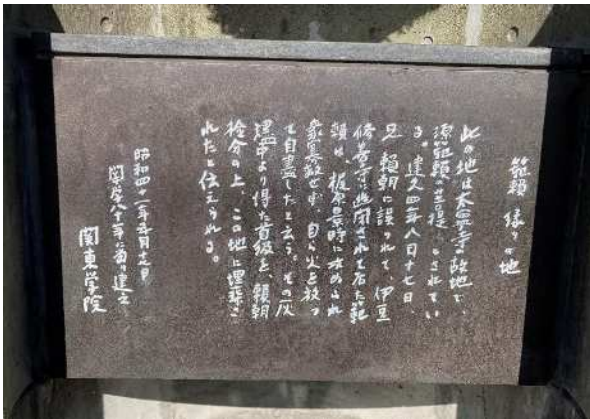 範頼 縁りの地
此の地は太寧寺敷地で、
源範頼の菩提 とされてい
る。建久四年八月十七日、
兄 頼朝に誤られて、伊豆
修善寺に幽閉されて居た範
頼は、梶原景時に攻められ
衆寡敵せず、自ら火を放っ
て自盡したと云う。その灰
燼中より得た首級を、頼朝
検分の上、この地に埋葬さ
れたと伝えられる。
昭和四十一年
関学八十年に当り建之
関東学院